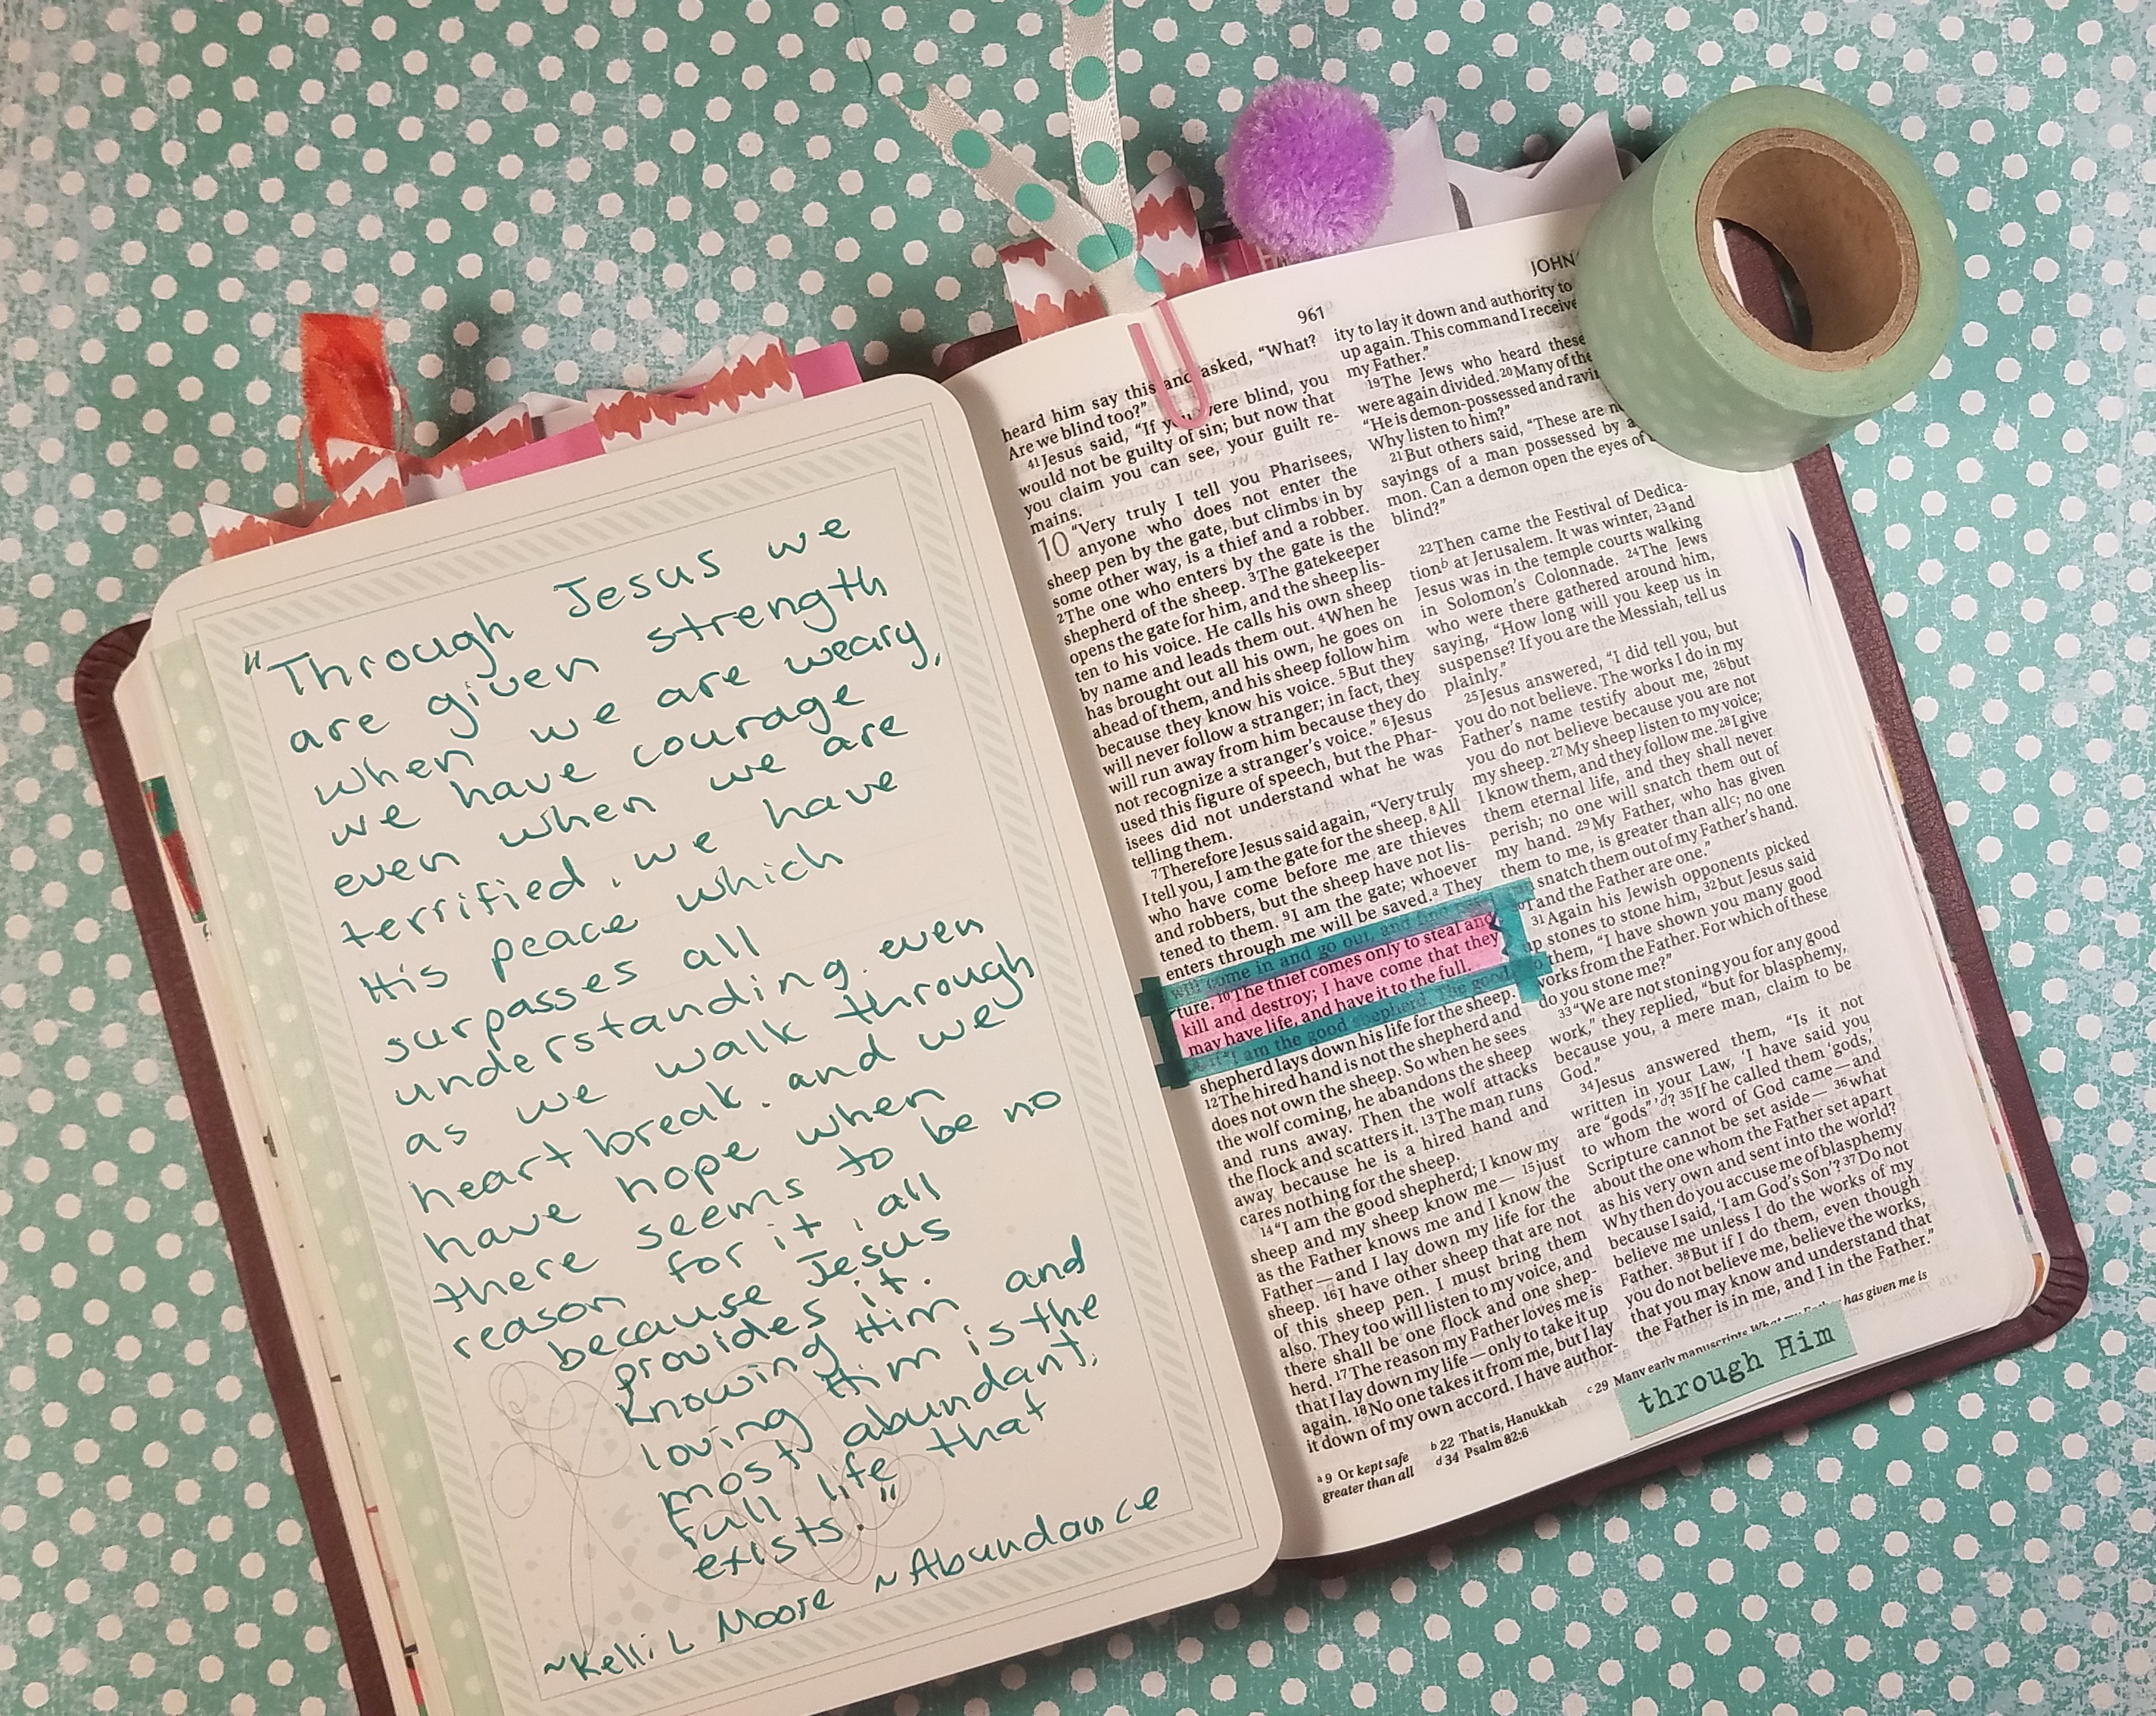 "Through Jesus we
are given strength
when we are weary,
we have courage
even when we are
terrified, we have
His peace which
surpasses all
understanding even
as we walk through
heartbreak, and we
have hope when
there seems to be no
reason for it, all
because Jesus
provides it.
Knowing Him and
loving Him is the
most abundant,
full life that
exists."
~Kelli L Moore ~Abundance
961
heard him say this and asked, “What?
Are we blind too?”
41Jesus said, “If you were blind, you
would not be guilty of sin; but now that
you claim you can see, your guilt re-
mains.
10 “Very truly I tell you Pharisees,
anyone who does not enter the
sheep pen by the gate, but climbs in by
some other way, is a thief and a robber.
2The one who enters by the gate is the
shepherd of the sheep. 3The gatekeeper
opens the gate for him, and the sheep lis-
ten to his voice. He calls his own sheep
by name and leads them out. 4When he
has brought out all his own, he goes on
ahead of them, and his sheep follow him
because they know his voice. 5But they
will never follow a stranger; in fact, they
will run away from him because they do
not recognize a stranger’s voice.” 6Jesus
used this figure of speech, but the Phar-
isees did not understand what he was
telling them.
7Therefore Jesus said again, “Very truly
I tell you, I am the gate for the sheep. 8All
who have come before me are thieves
and robbers, but the sheep have not lis-
tened to them. 9I am the gate; whoever
enters through me will be saved.a They
will come in and go out, and find pas-
ture. 10The thief comes only to steal and
kill and destroy; I have come that they
may have life, and have it to the full.
“I am the good shepherd. The good
shepherd lays down his life for the sheep.
12The hired hand is not the shepherd and
does not own the sheep. So when he sees
the wolf coming, he abandons the sheep
and runs away. Then the wolf attacks
the flock and scatters it. 13The man runs
away because he is a hired hand and
cares nothing for the sheep.
14“I am the good shepherd; I know my
sheep and my sheep know me— 15just
as the Father knows me and I know the
Father—and I lay down my life for the
sheep. 16I have other sheep that are not
of this sheep pen. I must bring them
also. They too will listen to my voice, and
there shall be one flock and one shep-
herd. 17The reason my Father loves me is
that I lay down my life—only to take it up
again. 18No one takes it from me, but I lay
it down of my own accord. I have author-
JOHN
ity to lay it down and authority to
up again. This command I receive
my Father.”
19The Jews who heard these
were again divided. 20Many of the
“He is demon-possessed and ravi
Why listen to him?”
21But others said, “These are
sayings of a man possessed by a
mon. Can a demon open the eyes of
blind?”
22Then came the Festival of Dedica-
tionb at Jerusalem. It was winter, 23and
Jesus was in the temple courts walking
in Solomon’s Colonnade. 24The Jews
who were there gathered around him,
saying, “How long will you keep us in
suspense? If you are the Messiah, tell us
plainly.”
25Jesus answered, “I did tell you, but
you do not believe. The works I do in my
Father’s name testify about me, 26but
you do not believe because you are not
my sheep. 27My sheep listen to my voice;
I know them, and they follow me. 28I give
them eternal life, and they shall never
perish; no one will snatch them out of
my hand. 29My Father, who has given
them to me, is greater than allc; no one
snatch them out of my Father’s hand.
I and the Father are one.”
31Again his Jewish opponents picked
up stones to stone him, 32but Jesus said
to them, “I have shown you many good
works from the Father. For which of these
do you stone me?”
33“We are not stoning you for any good
work,” they replied, “but for blasphemy,
because you, a mere man, claim to be
God.”
34Jesus answered them, “Is it not
written in your Law, ‘I have said you
are “gods” ’d? 35If he called them ‘gods,’
to whom the word of God came—and
Scripture cannot be set aside— 36what
about the one whom the Father set apart
as his very own and sent into the world?
Why then do you accuse me of blasphemy
because I said, ‘I am God’s Son’? 37Do not
believe me unless I do the works of my
Father. 38But if I do them, even though
you do not believe me, believe the works,
that you may know and understand that
the Father is in me, and I in the Father.”
a 9 Or kept safe
b 22 That is, Hanukkah
c 29 Many early manuscripts What my Father has given me is
greater than all
d 34 Psalm 82:6
through Him